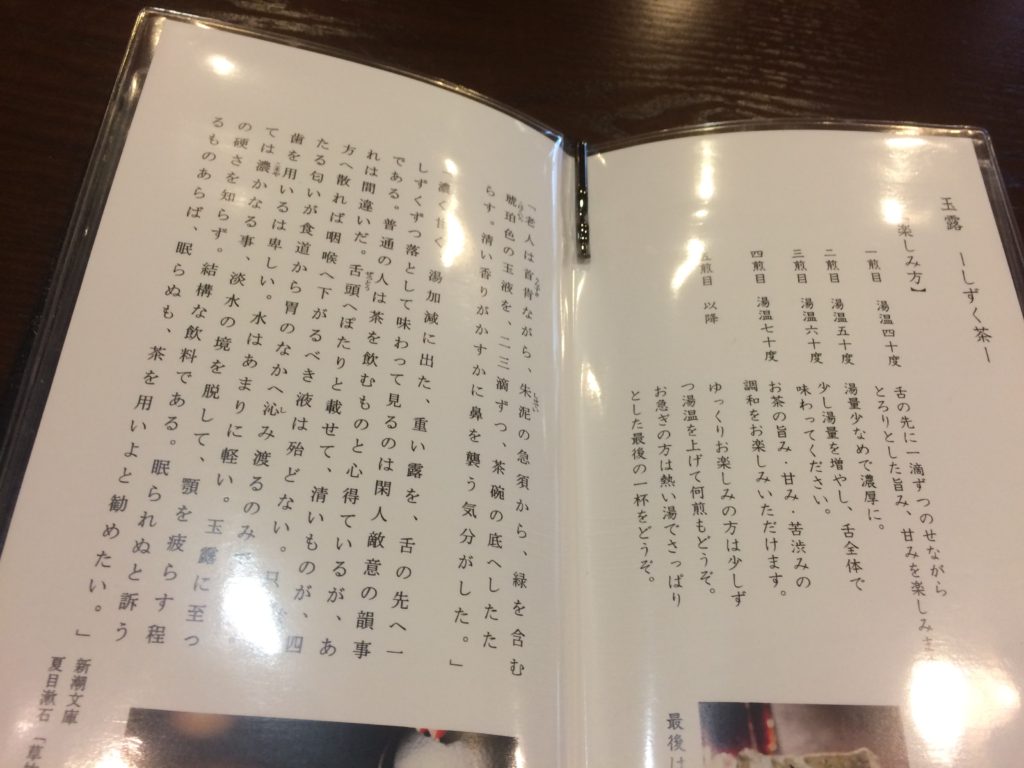 玉露　ーしずく茶ー
楽しみ方】
一煎目　湯温四十度
二煎目　湯温五十度
三煎目　湯温六十度
四煎目　湯温七十度
煎目　以降
舌の先に一滴ずつのせながら
とろりとした旨み、甘みを楽しみま
湯量少なめで濃厚に。
少し湯量を増やし、舌全体で
味わってください。
お茶の旨み・甘み・苦渋みの
調和をお楽しみいただけます。
ゆっくりお楽しみの方は少しず
つ湯温を上げて何煎もどうぞ。
お急ぎの方は熱い湯でさっぱり
とした最後の一杯をどうぞ。
最後は
「老人は首肯ながら、朱泥の急須から、緑を含む
琥珀色の玉液を、二三滴ずつ、茶碗の底へしたた
らす。清い香りがかすかに鼻を襲う気分がした。」
「濃く甘く、湯加減に出た、重い露を、舌の先へ一
しずくずつ落として味わって見るのは閑人敵意の韻事
である。普通の人は茶を飲むものと心得ているが、あ
れは間違いだ。舌頭へぽたりと載せて、清いものが、四
方へ散れば咽喉へ下がるべき液は殆どない。只
たる匂いが食道から胃のなかへ沁み渡るのみで
歯を用いるは卑しい。水はあまりに軽い。玉露に至っ
ては濃かなる事、淡水の境を脱して、顎を疲らす程
の硬さを知らず。結構な飲料である。眠られぬと訴う
るものあらば、眠らぬも、茶を用いよと勧めたい。」
新潮文庫
夏目漱石「草